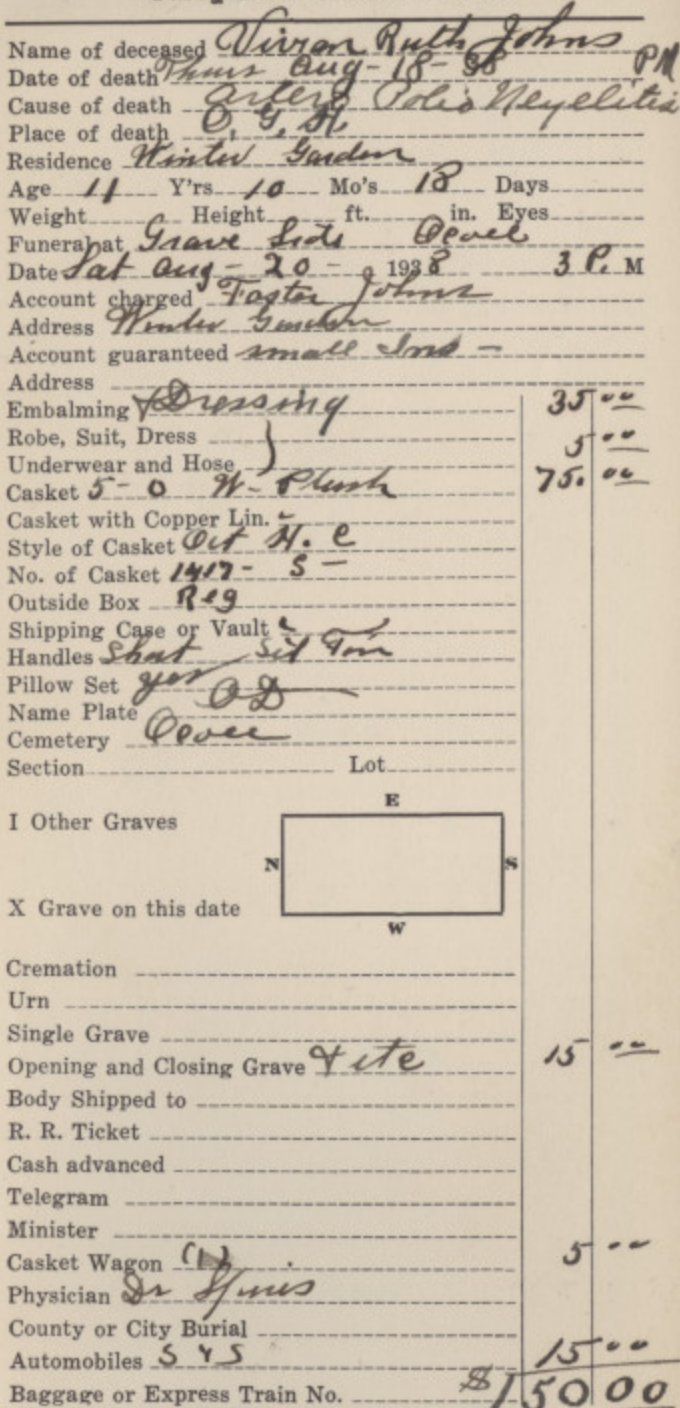 Name of deceased Vivian Ruth Johns
Date of death Thurs Aug - 18 - 38 PM
Cause of death Polio Meyelitis
Place of death O. G. H.
Residence Winter Garden
Age 11 Y'rs 10 Mo's 18 Days
Weight Height ft. in. Eyes
Funeral at Grave Side Ocoee
Date Sat Aug - 20 - 1938 3 P. M
Account charged Foster Johns
Address Winter Garden
Account guaranteed small Ins -
Address
Embalming & Dressing 35 00
Robe, Suit, Dress 5 00
Underwear and Hose
Casket 5 - 0 W - Plush 75. 00
Casket with Copper Lin. -
Style of Casket Oct H. C
No. of Casket 1417 - S -
Outside Box Reg
Shipping Case or Vault
Handles Short Sil
Pillow Set yes
Name Plate OD
Cemetery Ocoee
Section Lot
E
I Other Graves
N S
X Grave on this date
W
Cremation
Urn
Single Grave
Opening and Closing Grave 15 00
Body Shipped to
R. R. Ticket
Cash advanced
Telegram
Minister
Casket Wagon (1) 5 00
Physician Dr
County or City Burial
Automobiles S & S 15 00
Baggage or Express Train No. $150 00